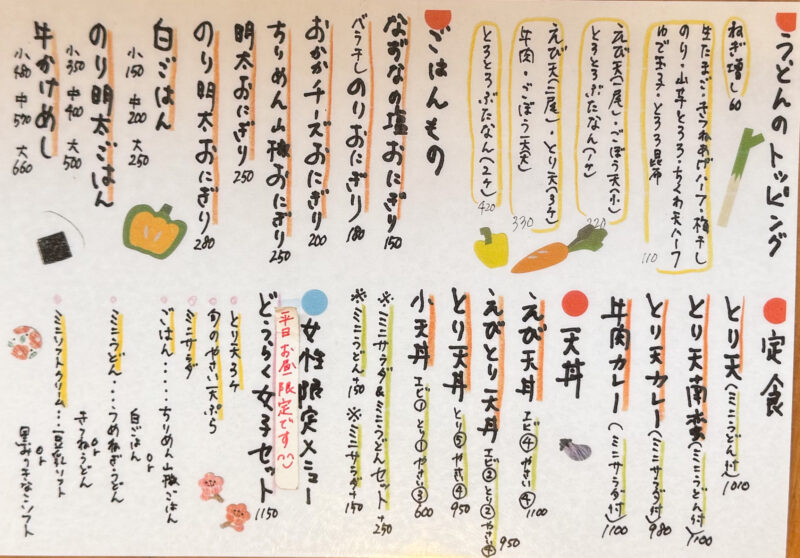 うどんのトッピング
ねぎ増し 60
生たまご・きつねあげハーフ・梅干し
のり・山芋とろろ・ちくわ天ハーフ
ゆで玉子・とろろ昆布
110
えび天(一尾)・ごぼう天(小)
とろとろぶたなん(一ケ)
220
えび天(二尾)・とり天(3ケ)
牛肉・ごぼう天(大)
330
とろとろぶたなん(2ケ)
420
ごはんもの
なずなの塩おにぎり 150
バラ干しのりおにぎり 180
おかかチーズおにぎり 200
ちりめん山椒おにぎり 250
明太おにぎり 250
のり明太おにぎり 280
白ごはん
小150 中200 大250
のり明太ごはん
小350 中400 大500
牛かけめし
小480 中570 大660
定食
とり天(ミニうどん付) 1010
とり天南蛮(ミニうどん付) 1100
とり天カレー(ミニサラダ付) 980
牛肉カレー(ミニサラダ付) 1100
天丼
えび天丼 エビ④ やさい④ 1100
えびとり天丼 エビ② とり② やさい④ 950
とり天丼 とり⑤ やさい④ 950
小天丼 エビ① とり① やさい③ 600
※ミニサラダ&ミニうどんセット +250
※ミニうどん +150 ※ミニサラダ +150
女性限定メニュー
平日お昼限定です
どうらく女子セット 1150
とり天3ケ
旬のやさい天ぷら
ミニサラダ
ごはん・・・・・ちりめん山椒ごはん
or
白ごはん
ミニうどん・・・・うめねぎうどん
or
きつねうどん
ミニソフトクリーム・・豆乳ソフト
or
黒みつきなこソフト